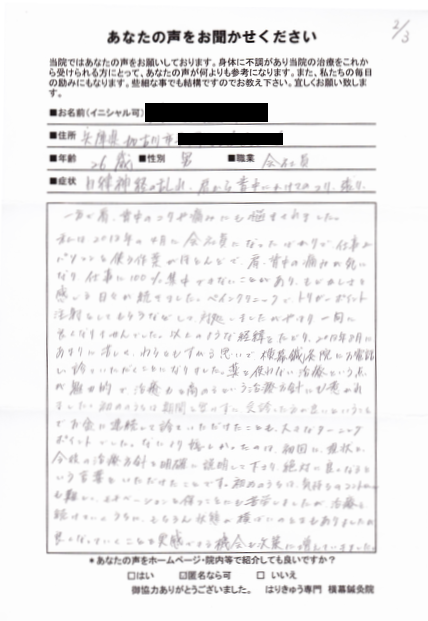 2/3
あなたの声をお聞かせください
当院ではあなたの声をお願いしております。身体に不調があり当院の治療をこれか
ら受けられる方にとって、あなたの声が何よりも参考になります。また、私たちの毎日
の励みにもなります。些細な事でも結構ですのでお教え下さい。宜しくお願い致しま
す。
■お名前(イニシャル可)
■住所 兵庫県加古川市
■年齢 26歳 ■性別 男 ■職業 会社員
■症状 自律神経の乱れ、肩から背中にかけてのコリ、張り
肩、背中のコリや痛みにも悩まされました。
私は2017年の4月に会社員になったばかりで仕事上
パソコンを使う作業がほとんどで、肩、背中の痛みが気に
なり仕事に100%集中できないことがあり、もどかしさを
感じる日々が続きました。ペインクリニックでトリガーポイント
注射をしてもらうなどして対処しましたが 一向に
良くなりませんでした。以上のような経緯をたどり、2018年2月に
わらにもすがる思いで横幕鍼灸院にお電話
し診ていただくことになりました。薬を使わない治療という点
が魅力的で、治療 という治療方針にも惹かれ
ました。初めのうちは期間を空けずに受診した方が良いということ
でお金に集中して診ていただけたことも、大きなターニング
ポイントでした。なにより嬉しかったのは、毎回に、症状と
今後の治療方針を明確に説明して下さり、絶対に良くなると
いう言葉をいただけたことです。初めのうちは、気持ちのコントロール
も難しく、モチベーションを保つことにも苦労しましたが、治療を
続けていくうちに、もちろん状態が横ばいのときもありましたが
良くなっていくことを実感できる機会も次第に増していきました。
*あなたの声をホームページ・院内等で紹介しても良いですか?
□はい ☑匿名なら可 □いいえ
御協力ありがとうございました。 はりきゅう専門 横幕鍼灸院